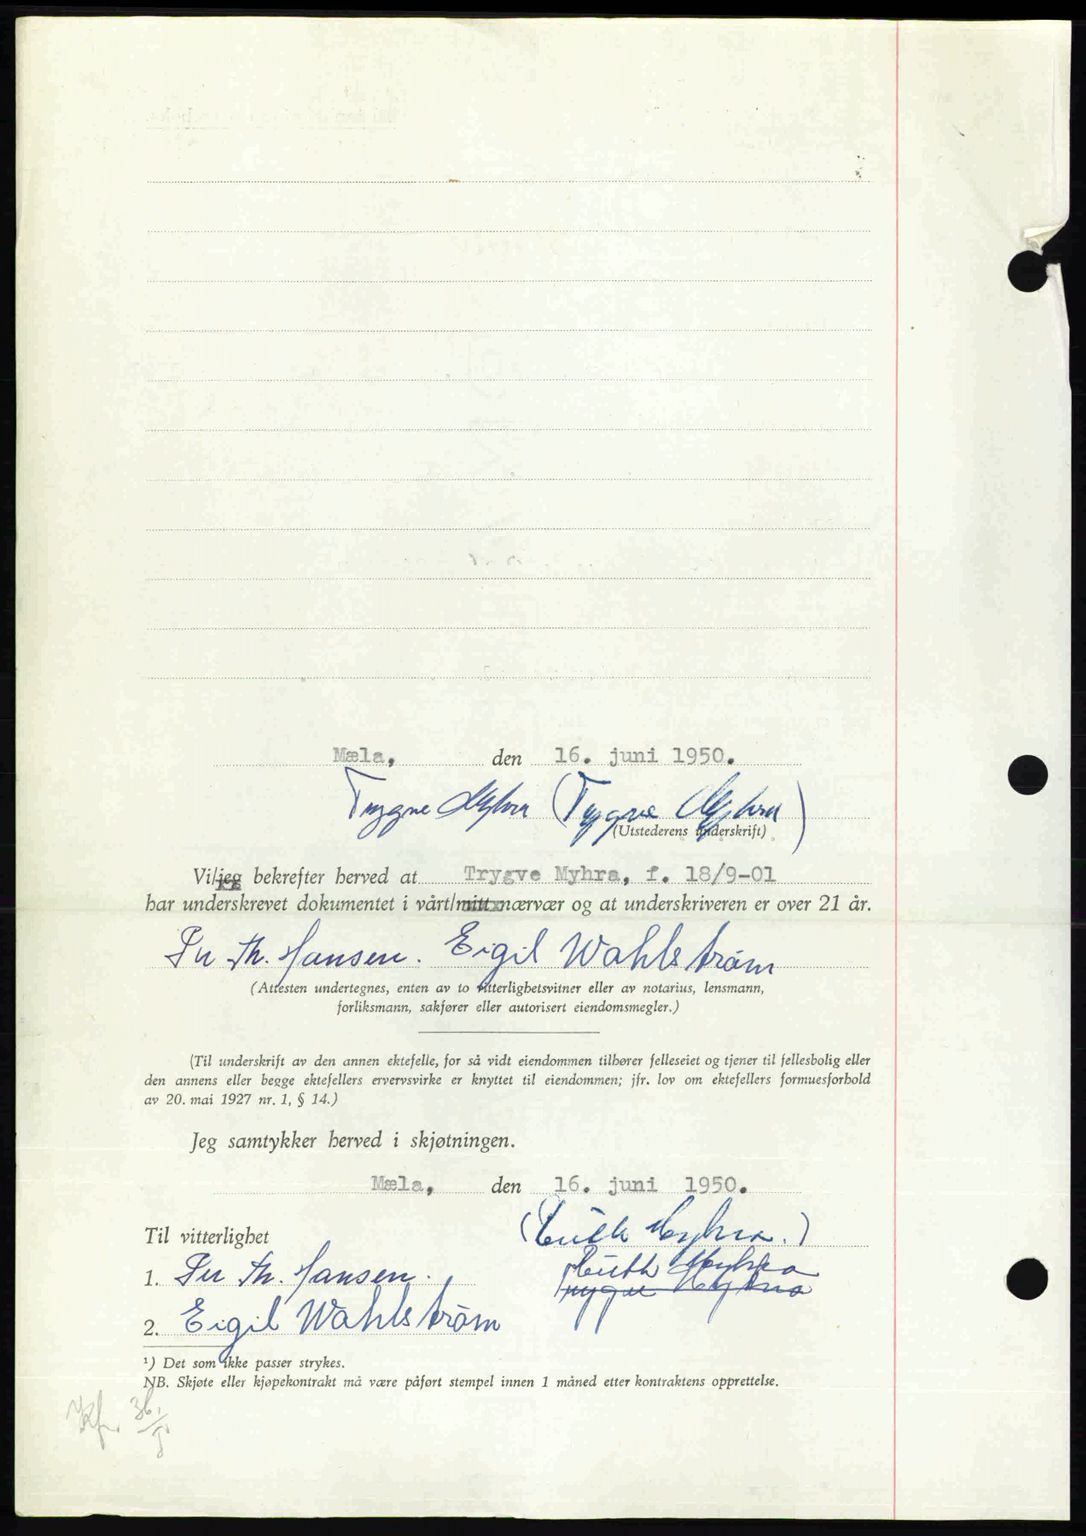 Mæla, den 16. juni 1950.
Trygve Myhra (Trygve Myhra)
(Utstederens underskrift)
Vi/jeg bekrefter herved at Trygve Myhra, f. 18/9-01
har underskrevet dokumentet i vårt/mitt nærvær og at underskriveren er over 21 år.
Th. Hansen. Eigil Wahlström
(Attesten undertegnes, enten av to vitterlighetsvitner eller av notarius, lensmann,
forliksmann, sakfører eller autorisert eiendomsmegler.)
(Til underskrift av den annen ektefelle, for så vidt eiendommen tilhører felleseiet og tjener til fellesbolig eller
den annens eller begge ektefellers ervervsvirke er knyttet til eiendommen; jfr. lov om ektefellers formuesforhold
av 20. mai 1927 nr. 1, § 14.)
Jeg samtykker herved i skjøtningen.
Mæla, den 16. juni 1950.
(Ruth Myhra.)
Til vitterlighet
Ruth Myhra
1. Th. Hansen.
Trygve Myhra
2. Eigil Wahlström
¹) Det som ikke passer strykes.
NB. Skjøte eller kjøpekontrakt må være påført stempel innen 1 måned etter kontraktens opprettelse.